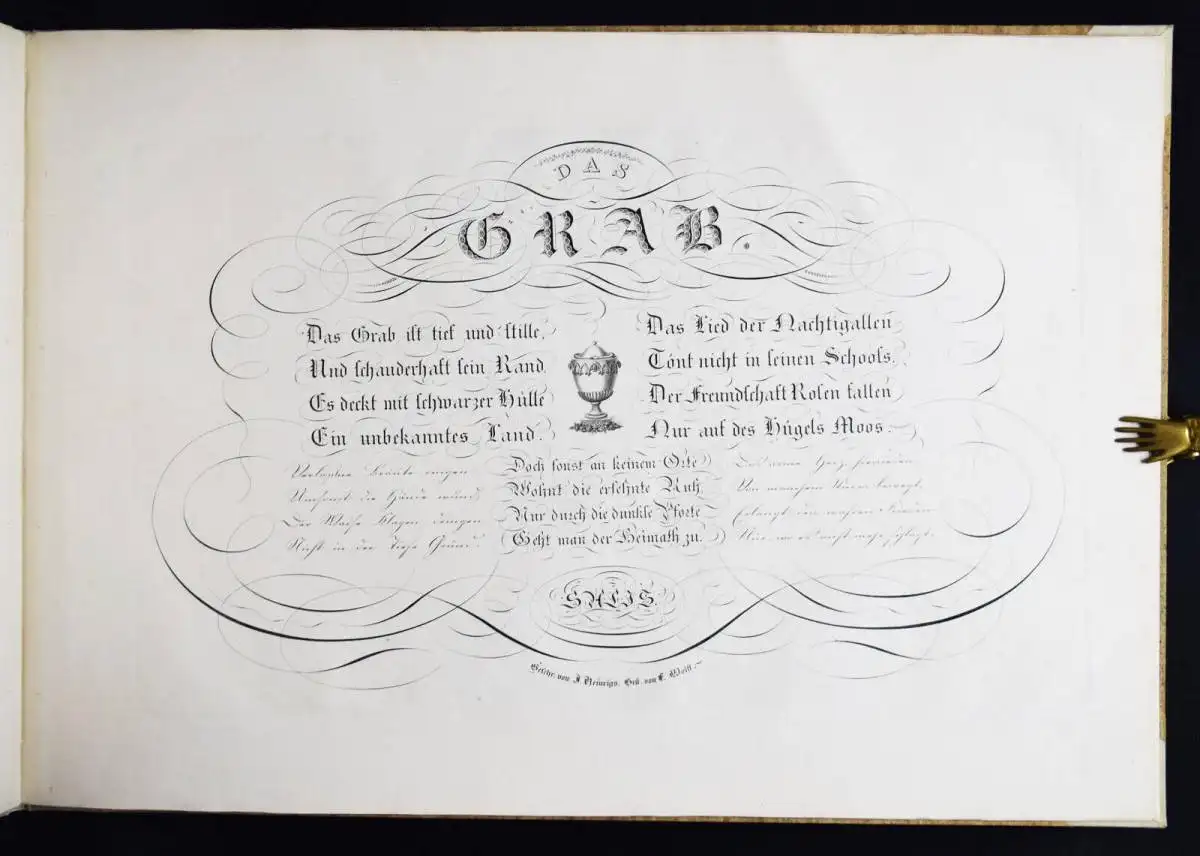 DAS
GRAB.
Das Grab iſt tief und ſtille,
Und ſchauderhaft ſein Rand,
Es deckt mit ſchwarzer Hülle
Ein unbekanntes Land.
Das Lied der Nachtigallen
Tönt nicht in ſeinen Schooſs.
Der Freundſchaft Roſen fallen
Nur auf des Hügels Moos.
Bräute ringen
Umſonst die Hände wund,
Der Waiſe Klagen dringen
Nicht in der Tiefe Grund.
Doch ſonst an keinem Orte
Wohnt die erſehnte Ruh,
Nur durch die dunkle Pforte
Geht man der Heimath zu.
Das arme Herz hienieden
Von manchem Sturm bewegt,
Erlangt den wahren Frieden
Nur, wo es nicht mehr ſchlägt.
SALIS.
Geſchr. von J. Heinrigs. Geſt. von C. Wolff.